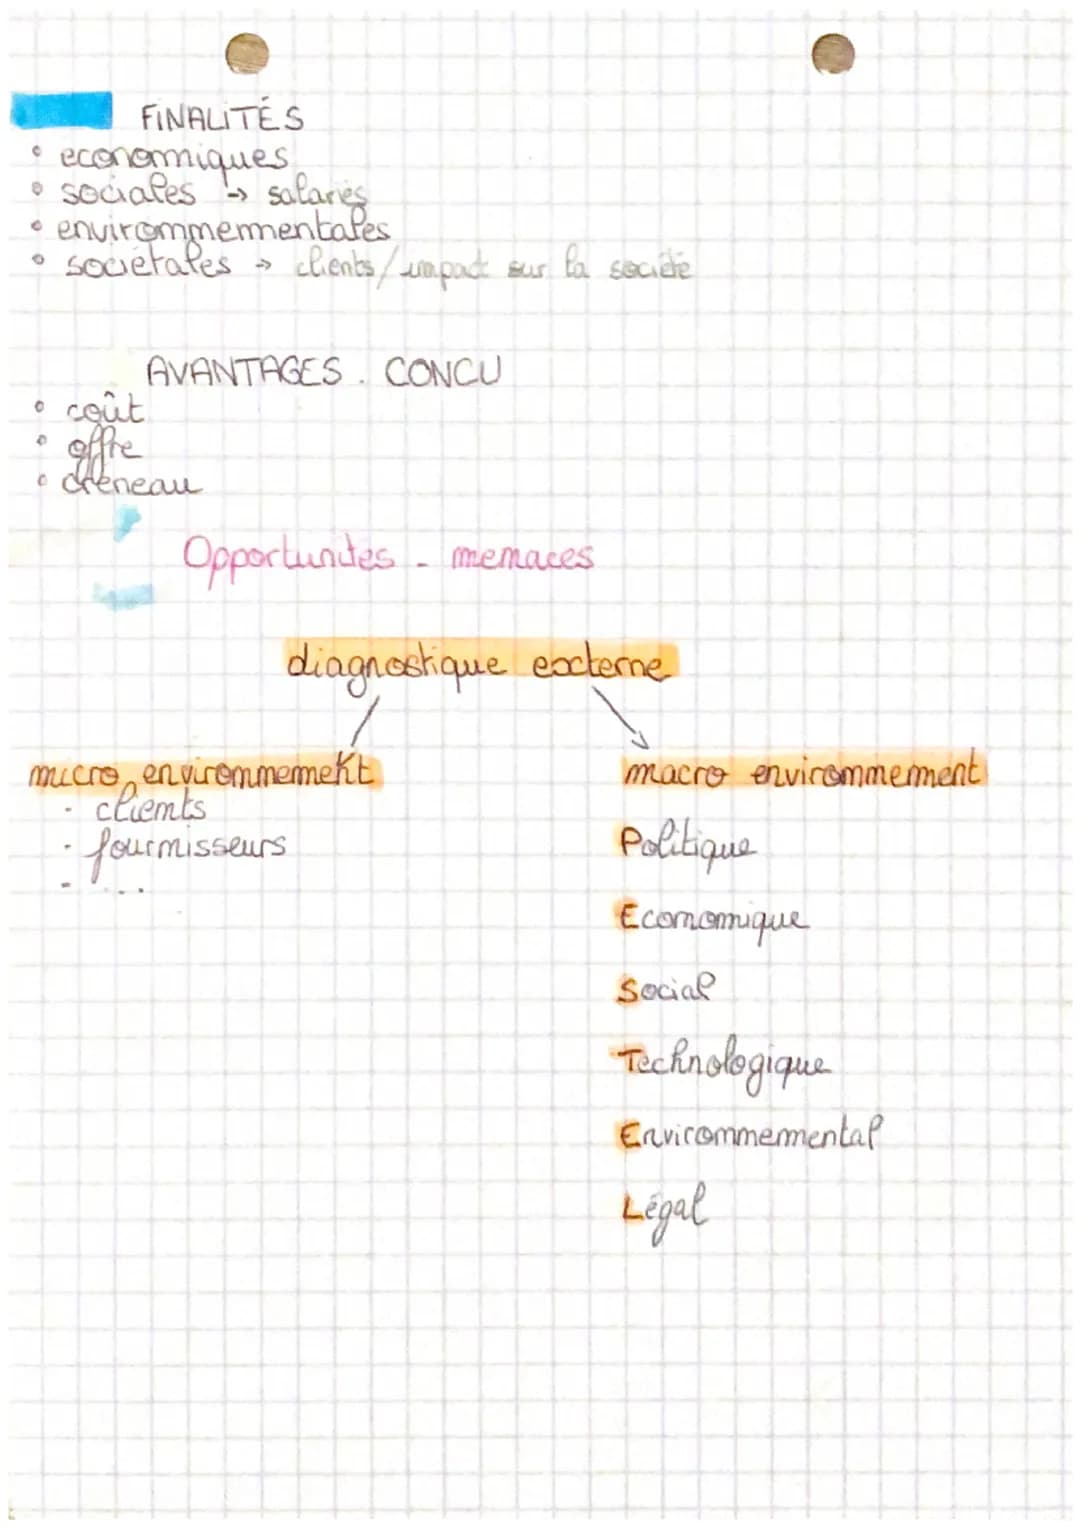 FINALITÉS
• economiques
• sociales → salariés
• environnementales
• sociétales → clients/impact sur la société
AVANTAGES. CONCU
• coût
• offre
• créneau
Opportunités - menaces
diagnostique externe
micro environnement
macro environnement
- clients
- fournisseurs
- ...
Politique
Economique
Social
Technologique
Environnemental
Légal